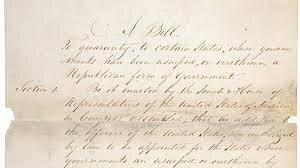 A Bill
to guaranty, to certain States, whose govern
ments have been usurped, or overthrown, a
Republican form of Government.
Section 1. Be it enacted by the Senate & House of
Representatives of the United States of America
in Congress assembled, that in
the officers of the United States, authorized
by law to be appointed for the States whose
governments are usurped or overthrown by